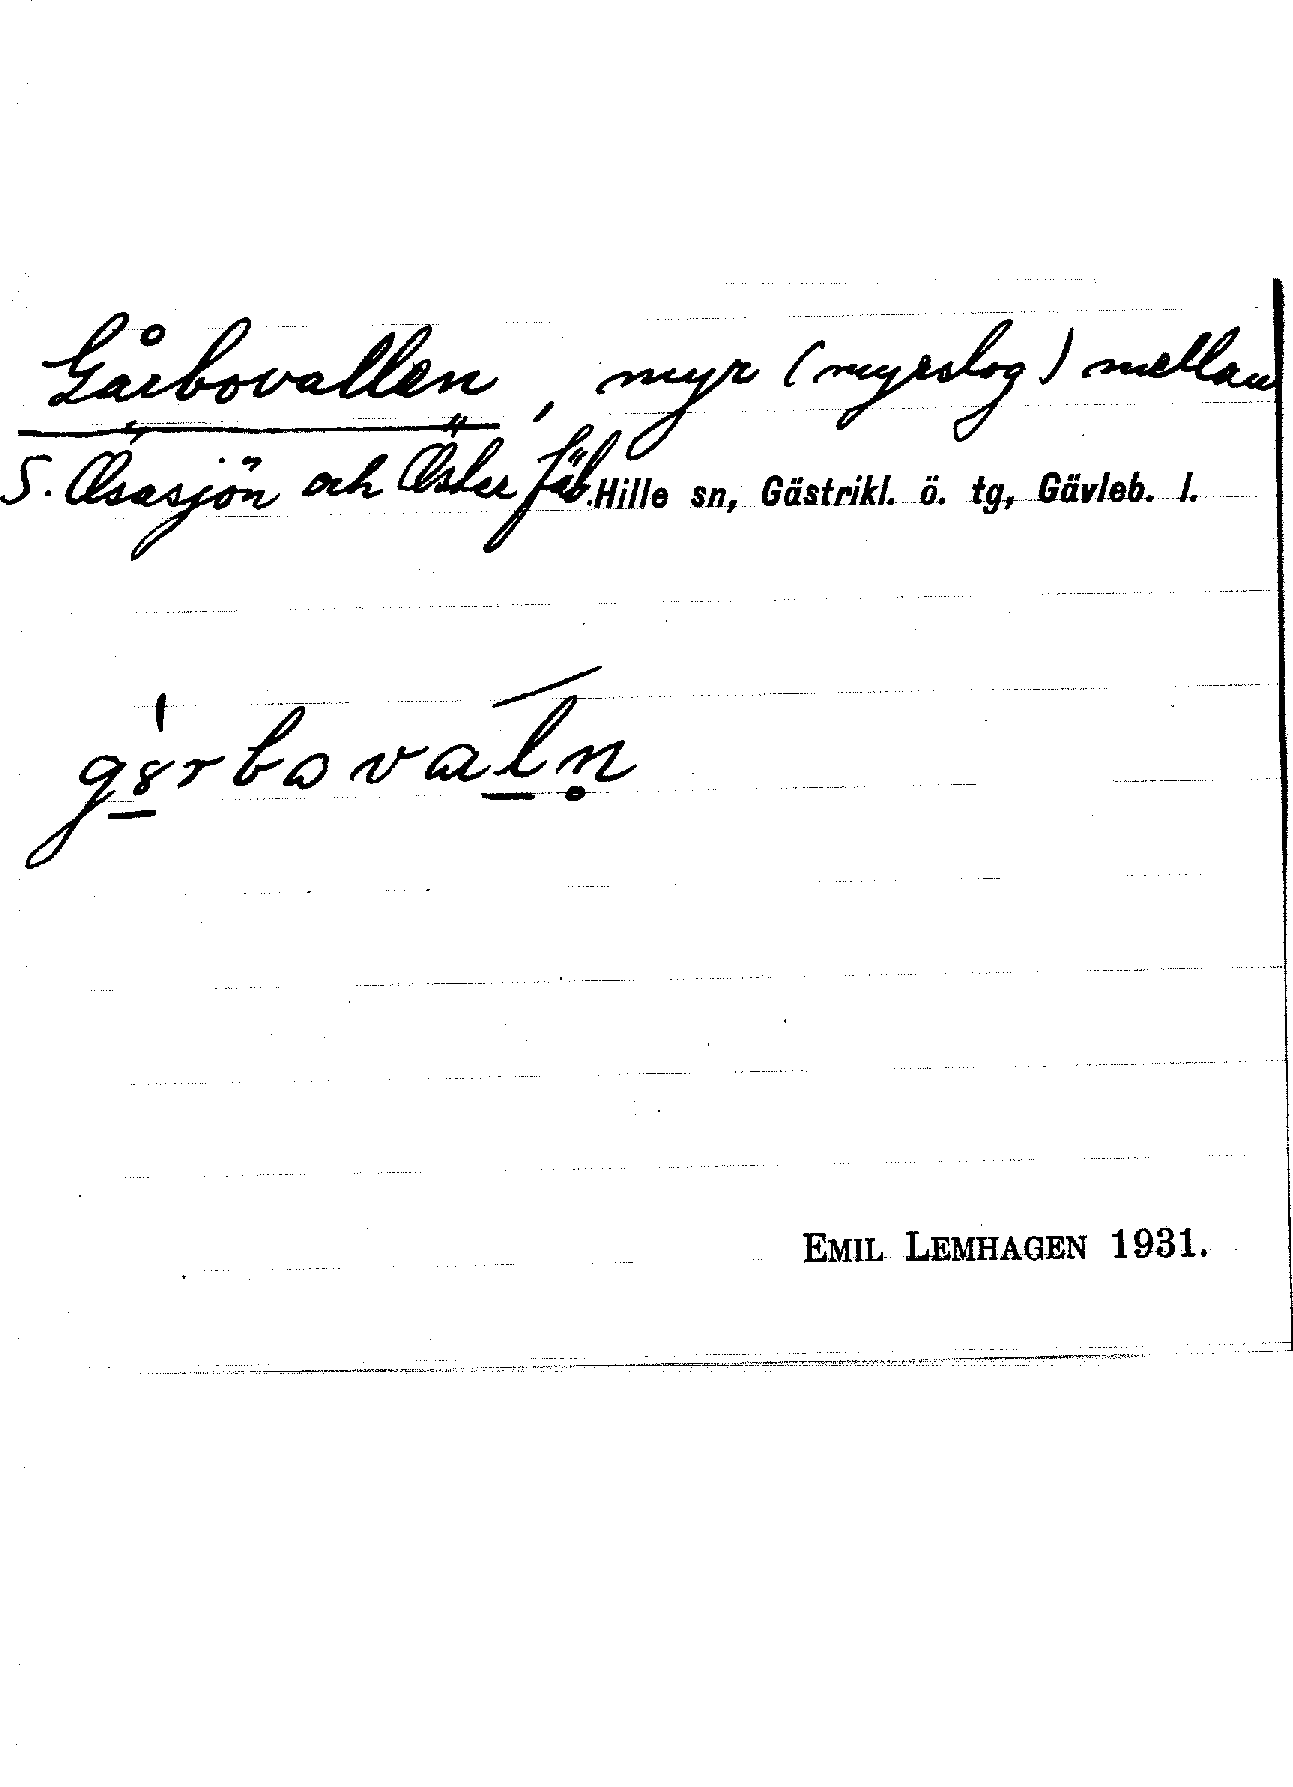 Gårbovallen, myr (myrslog) mellan
S. Åsasjön och Öster fäb. Hille sn, Gästrikl. ö. tg, Gävleb. l.
EMIL LEMHAGEN 1931.